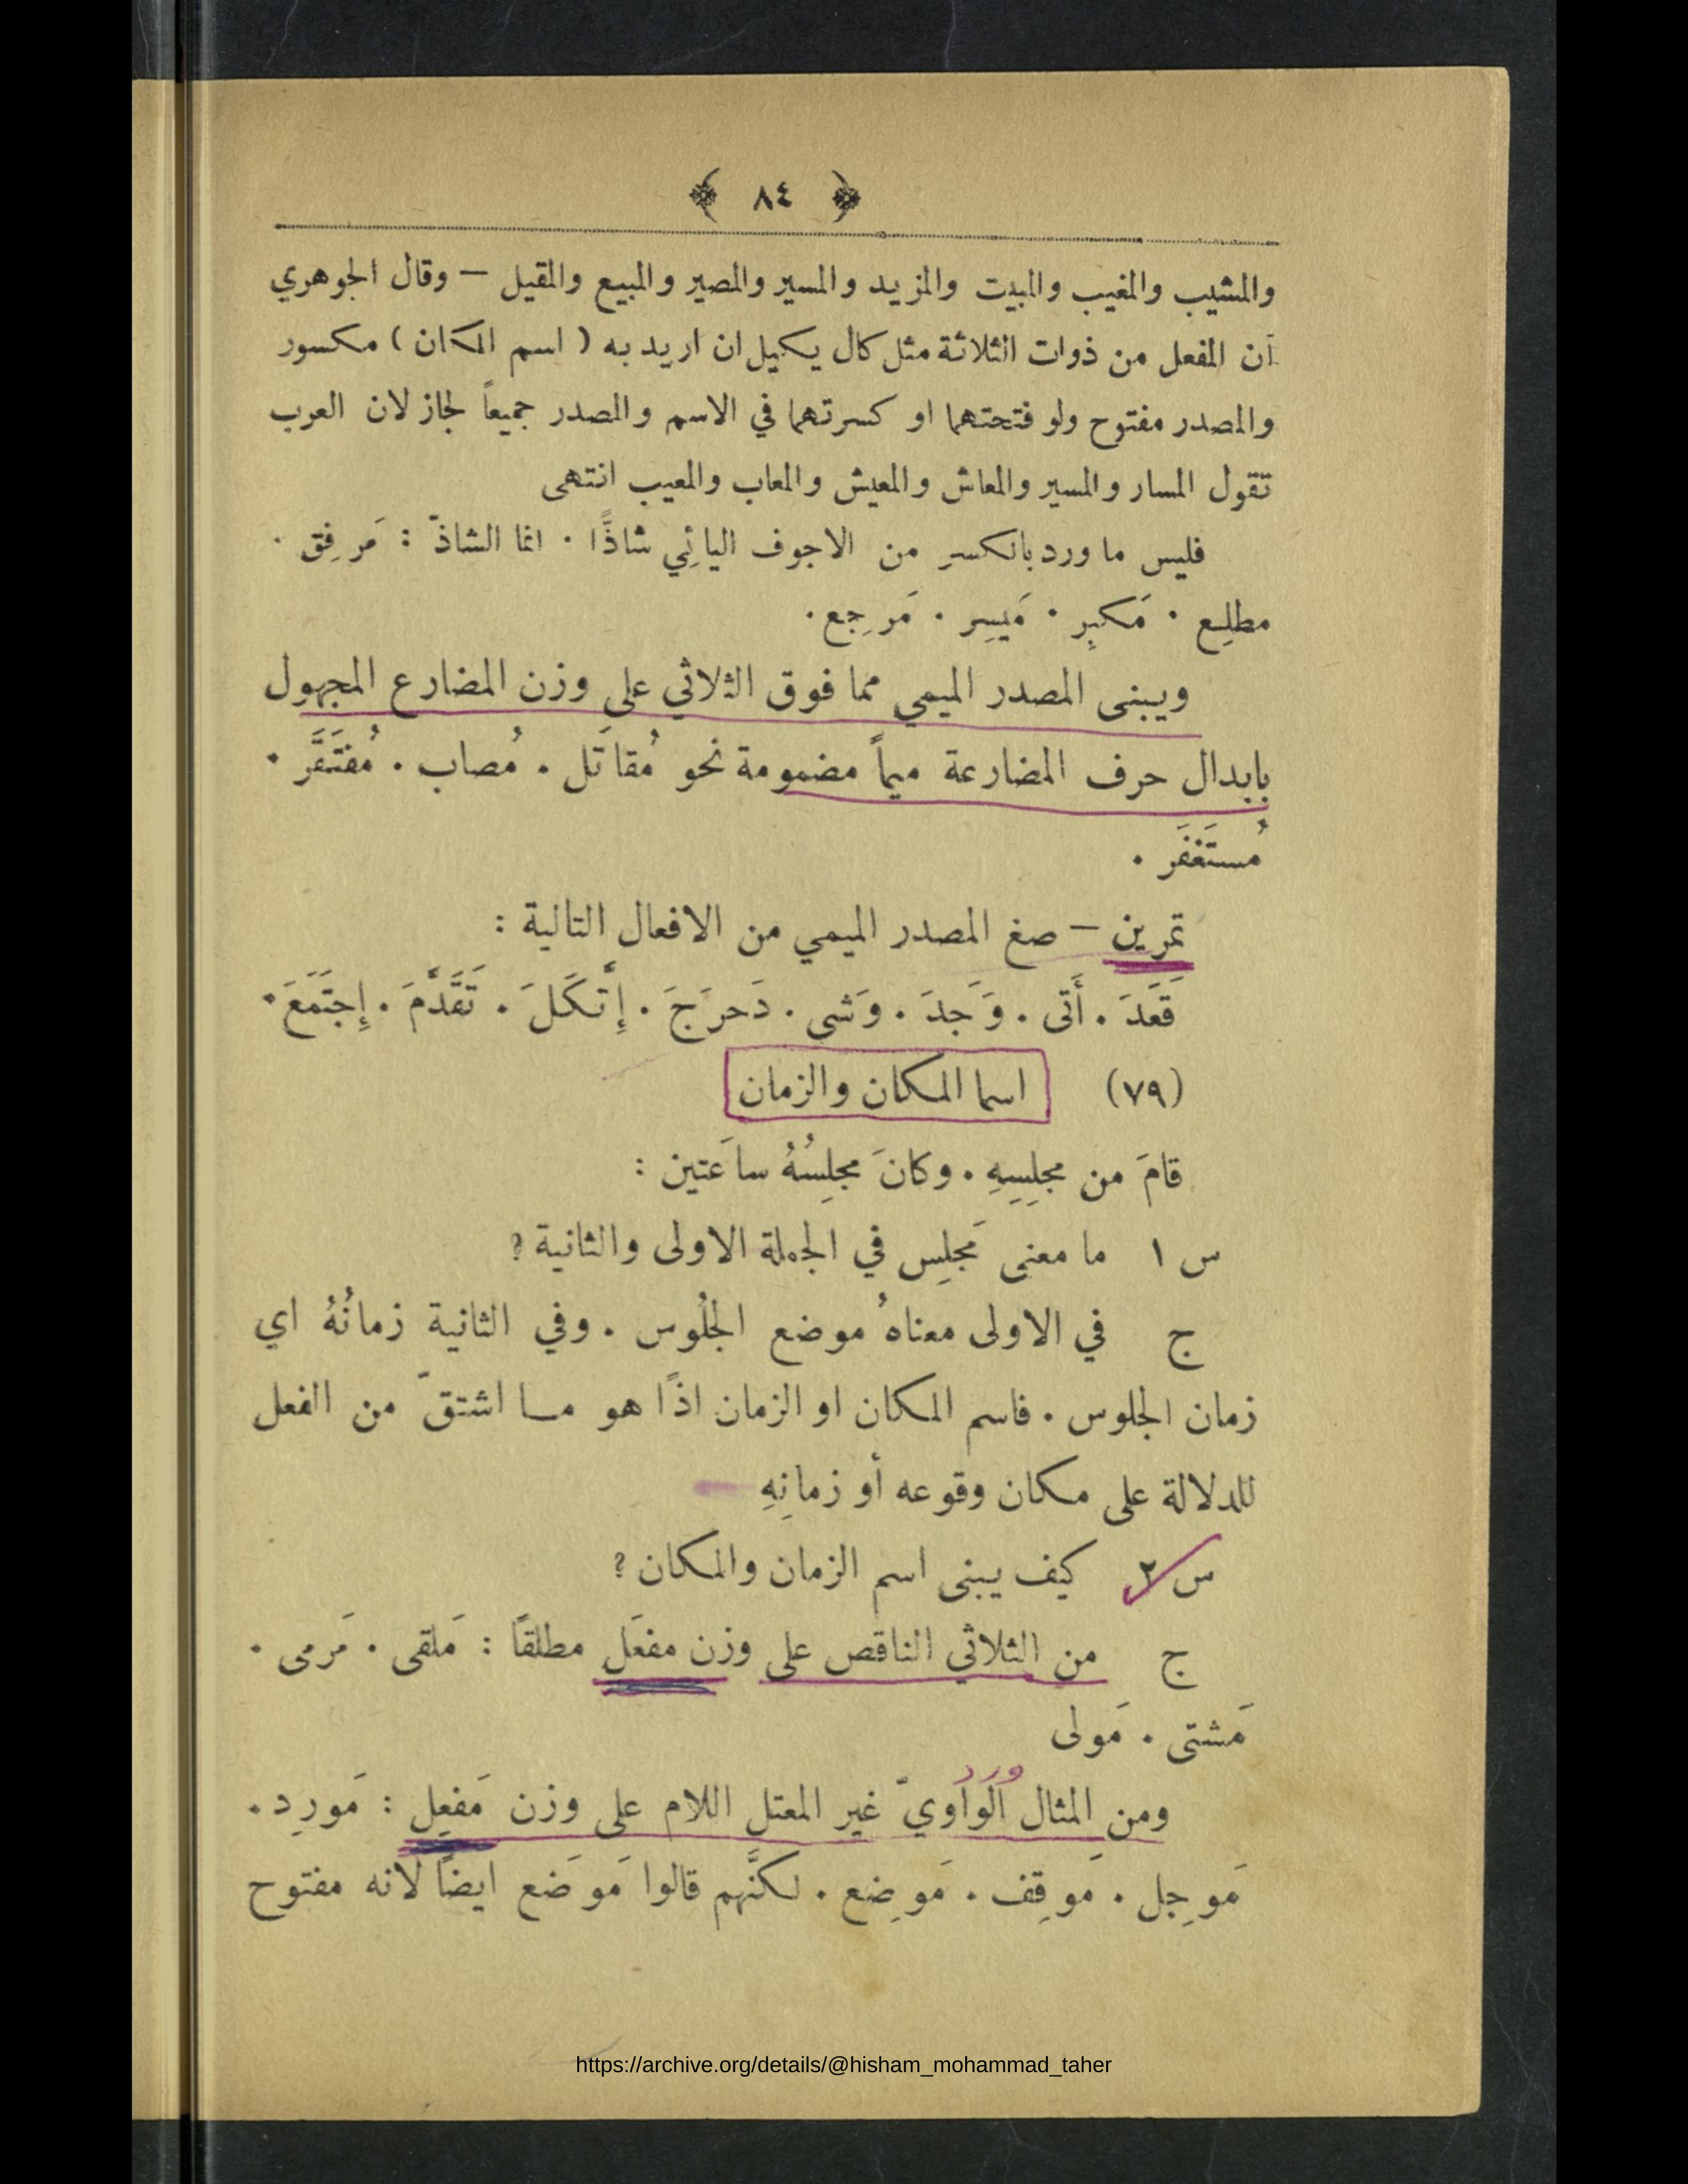 ﴾ ٨٤ ﴿
والمشيب والمغيب والمبيت والمزيد والمسير والمصير والمبيع والمقيل — وقال الجوهري
أن المفعل من ذوات الثلاثة مثل كال يكيل ان اريد به ( اسم المكان ) مكسور
والمصدر مفتوح ولو فتحتهما او كسرتهما في الاسم والمصدر جميعاً لجاز لان العرب
تقول المسار والمسير والمعاش والمعيش والمعاب والمعيب انتهى
فليس ما ورد بالكسر من الاجوف اليائِي شاذًّا . انما الشاذّ : مَرفِق .
مطلِع . مَكبِر . مَيسِر . مَرجِع .
ويبنى المصدر الميمي مما فوق الثلاثي على وزن المضارع المجهول
بابدال حرف المضارعة ميماً مضمومة نحو مُقاتَل . مُصاب . مُفتَقَر .
مُستَغفَر .
تمرين — صغ المصدر الميمي من الافعال التالية :
قَعَدَ . أَتى . وَجدَ . وَشى . دَحرَجَ . إِتَّكَلَ . تَقَدَّمَ . إِجتَمَعَ .
(٧٩) اسما المكان والزمان
قامَ من مجلِسِهِ . وكانَ مجلِسُهُ ساعَتين :
س ١ ما معنى مَجلِس في الجملة الاولى والثانية ؟
ج في الاولى معناهُ موضع الجلُوس . وفي الثانية زمانُهُ اي
زمان الجلوس . فاسم المكان او الزمان اذًا هو ما اشتقّ من الفعل
للدلالة على مكان وقوعه أو زمانِهِ
س ٢ كيف يبنى اسم الزمان والمكان ؟
ج من الثلاثي الناقص على وزن مفعَل مطلقًا : مَلقى . مَرمى .
مَشتى . مَولى
ورد
ومن المثال الواويّ غير المعتل اللام على وزن مَفعِل : مَورِد .
مَوجِل . مَوقِف . مَوضِع . لكنَّهم قالوا مَوضَع ايضًا لانه مفتوح
https://archive.org/details/@hisham_mohammad_taher